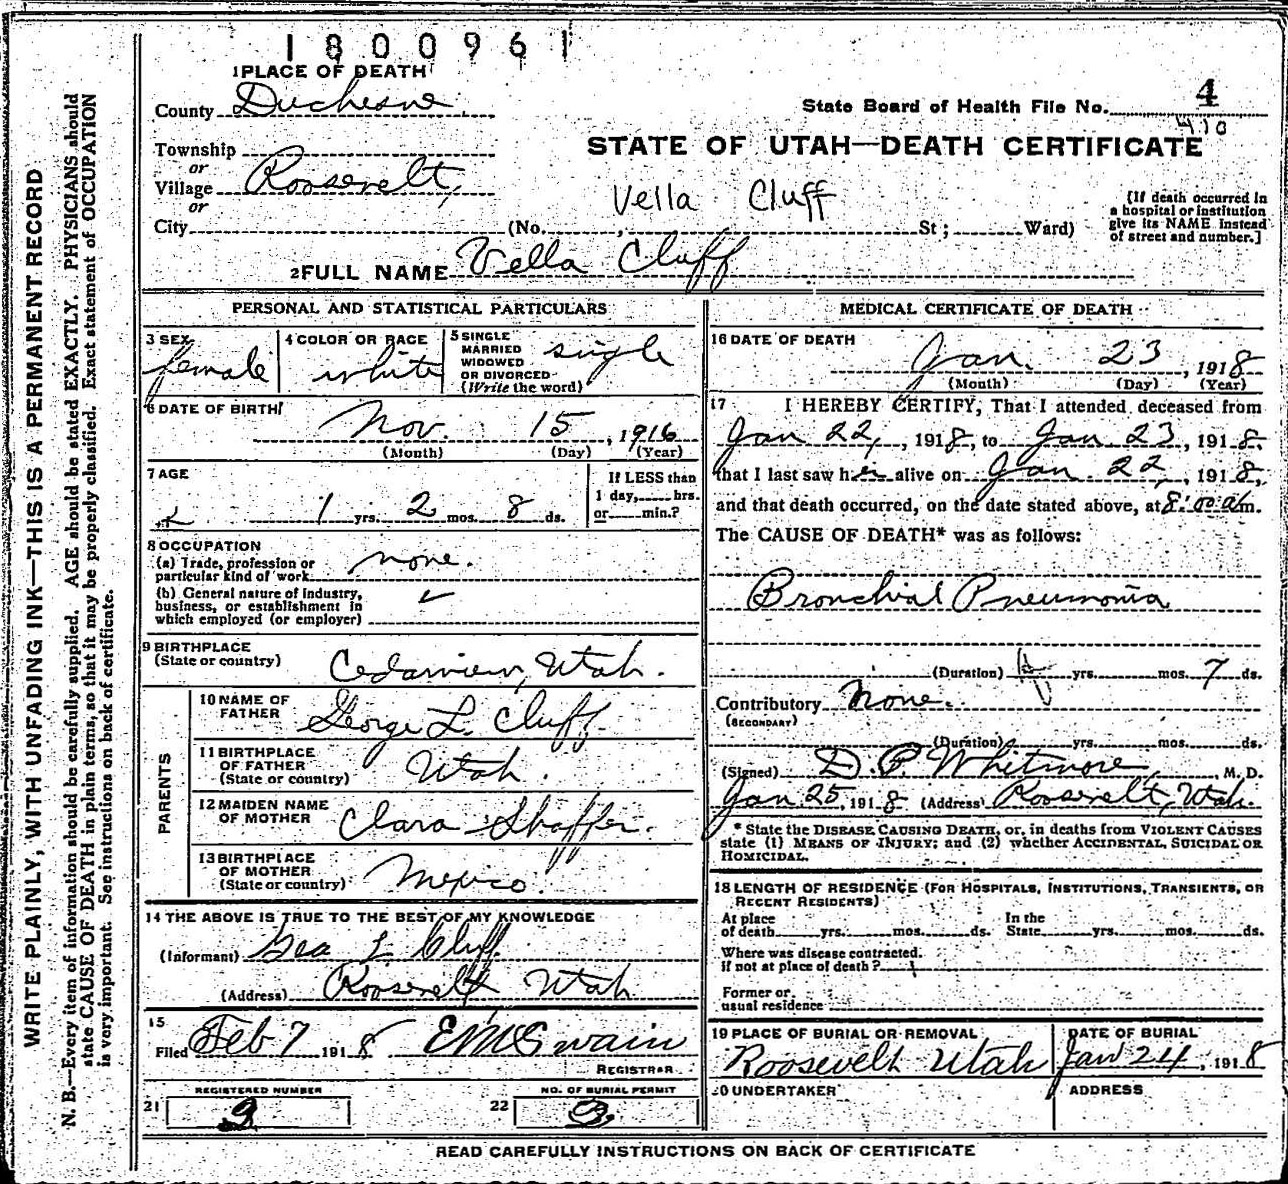 1800961
1 PLACE OF DEATH
County Duchesne
State Board of Health File No. 4
410
STATE OF UTAH—DEATH CERTIFICATE
Township
or
Village Roosevelt,
or
Vella Cluff
City (No. , St; Ward)
[If death occurred in
a hospital or institution
give its NAME instead
of street and number.]
2 FULL NAME Vella Cluff
PERSONAL AND STATISTICAL PARTICULARS
3 SEX female
4 COLOR OR RACE white
5 SINGLE
MARRIED
WIDOWED
OR DIVORCED
(Write the word) single
6 DATE OF BIRTH
Nov. 15, 1916
(Month) (Day) (Year)
7 AGE
1 yrs. 2 mos. 8 ds.
If LESS than
1 day, hrs.
or min.?
8 OCCUPATION
(a) Trade, profession or
particular kind of work none.
(b) General nature of industry,
business, or establishment in
which employed (or employer)
9 BIRTHPLACE
(State or country) Cedarview, Utah.
PARENTS
10 NAME OF
FATHER George L. Cluff.
11 BIRTHPLACE
OF FATHER
(State or country) Utah.
12 MAIDEN NAME
OF MOTHER Clara Shaffer.
13 BIRTHPLACE
OF MOTHER
(State or country) Mexico.
14 THE ABOVE IS TRUE TO THE BEST OF MY KNOWLEDGE
(Informant) Geo L. Cluff
(Address) Roosevelt Utah
15
Filed Feb 7 1918 E M C Swain
REGISTRAR
REGISTERED NUMBER
21 3
NO. OF BURIAL PERMIT
22 3
MEDICAL CERTIFICATE OF DEATH
16 DATE OF DEATH
Jan. 23, 1918
(Month) (Day) (Year)
17 I HEREBY CERTIFY, That I attended deceased from
Jan 22, 1918, to Jan 23, 1918.
that I last saw her alive on Jan. 22, 1918,
and that death occurred, on the date stated above, at 8:00 a.m.
The CAUSE OF DEATH* was as follows:
Bronchial Pneumonia
(Duration) yrs. mos. 7 ds.
Contributory None.
(SECONDARY)
(Duration) yrs. mos. ds.
(Signed) D. P. Whitmore, M. D.
Jan 25, 1918 (Address) Roosevelt, Utah.
* State the DISEASE CAUSING DEATH, or, in deaths from VIOLENT CAUSES
state (1) MEANS OF INJURY; and (2) whether ACCIDENTAL, SUICIDAL OR
HOMICIDAL.
18 LENGTH OF RESIDENCE (FOR HOSPITALS, INSTITUTIONS, TRANSIENTS, OR
RECENT RESIDENTS)
At place
of death yrs. mos. ds.
In the
State yrs. mos. ds.
Where was disease contracted.
if not at place of death?
Former or
usual residence
19 PLACE OF BURIAL OR REMOVAL
Roosevelt Utah
DATE OF BURIAL
Jan 24, 1918
20 UNDERTAKER
ADDRESS
READ CAREFULLY INSTRUCTIONS ON BACK OF CERTIFICATE
WRITE PLAINLY, WITH UNFADING INK—THIS IS A PERMANENT RECORD
N. B.—Every item of information should be carefully supplied. AGE should be stated EXACTLY. PHYSICIANS should
state CAUSE OF DEATH in plain terms, so that it may be properly classified. Exact statement of OCCUPATION
is very important. See instructions on back of certificate.